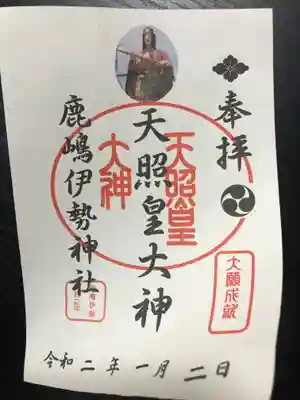 奉拝
天照皇大神
天照皇
大神
鹿嶋伊勢神社
大願成就
令和二年一月二日